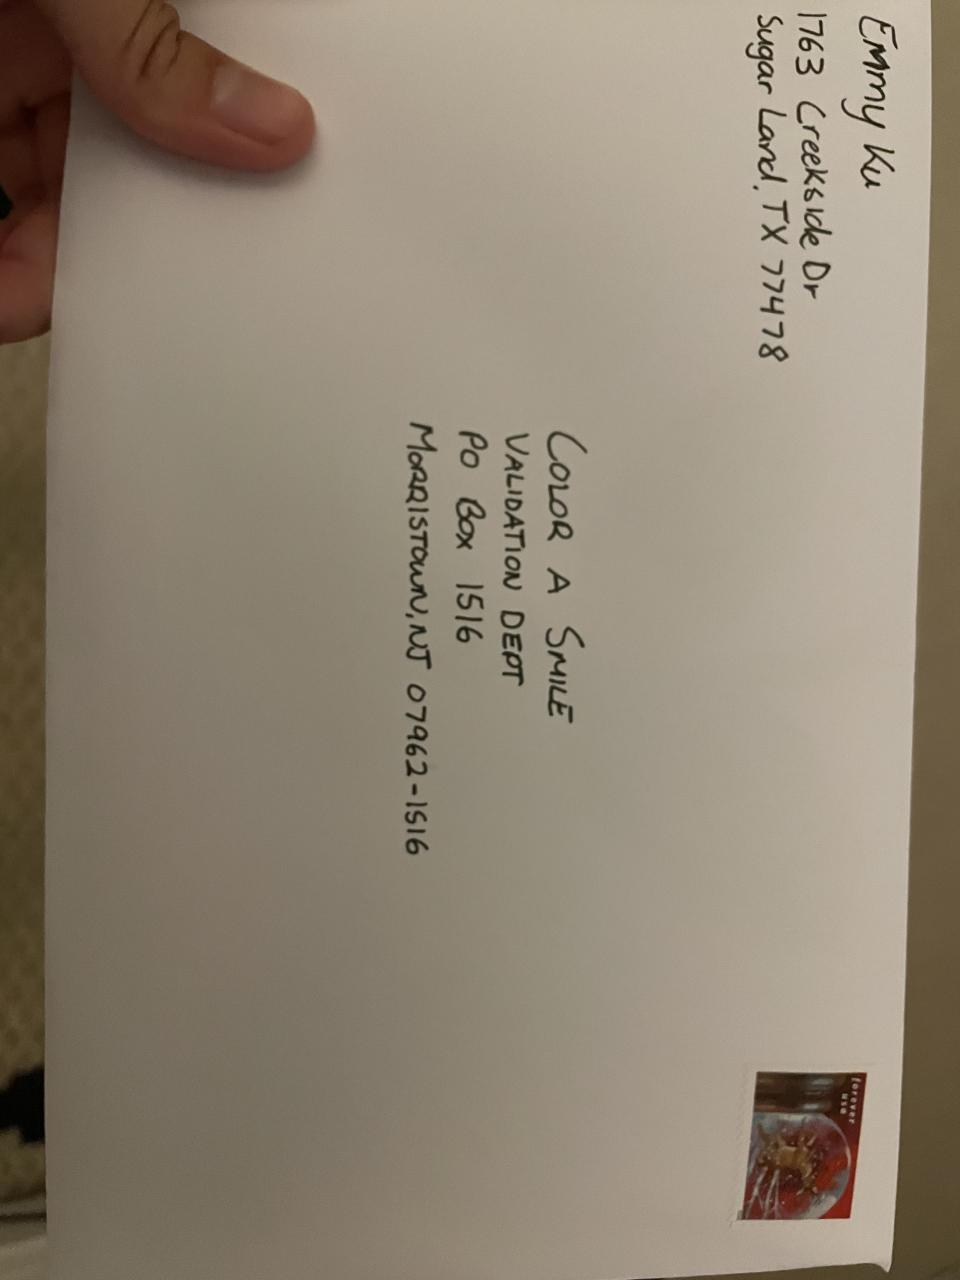 Emmy Ku
1763 Creekside Dr
Sugar Land, TX 77478
COLOR A SMILE
VALIDATION DEPT
PO BOX 1516
MORRISTOWN, NJ 07962-1516
forever
usa